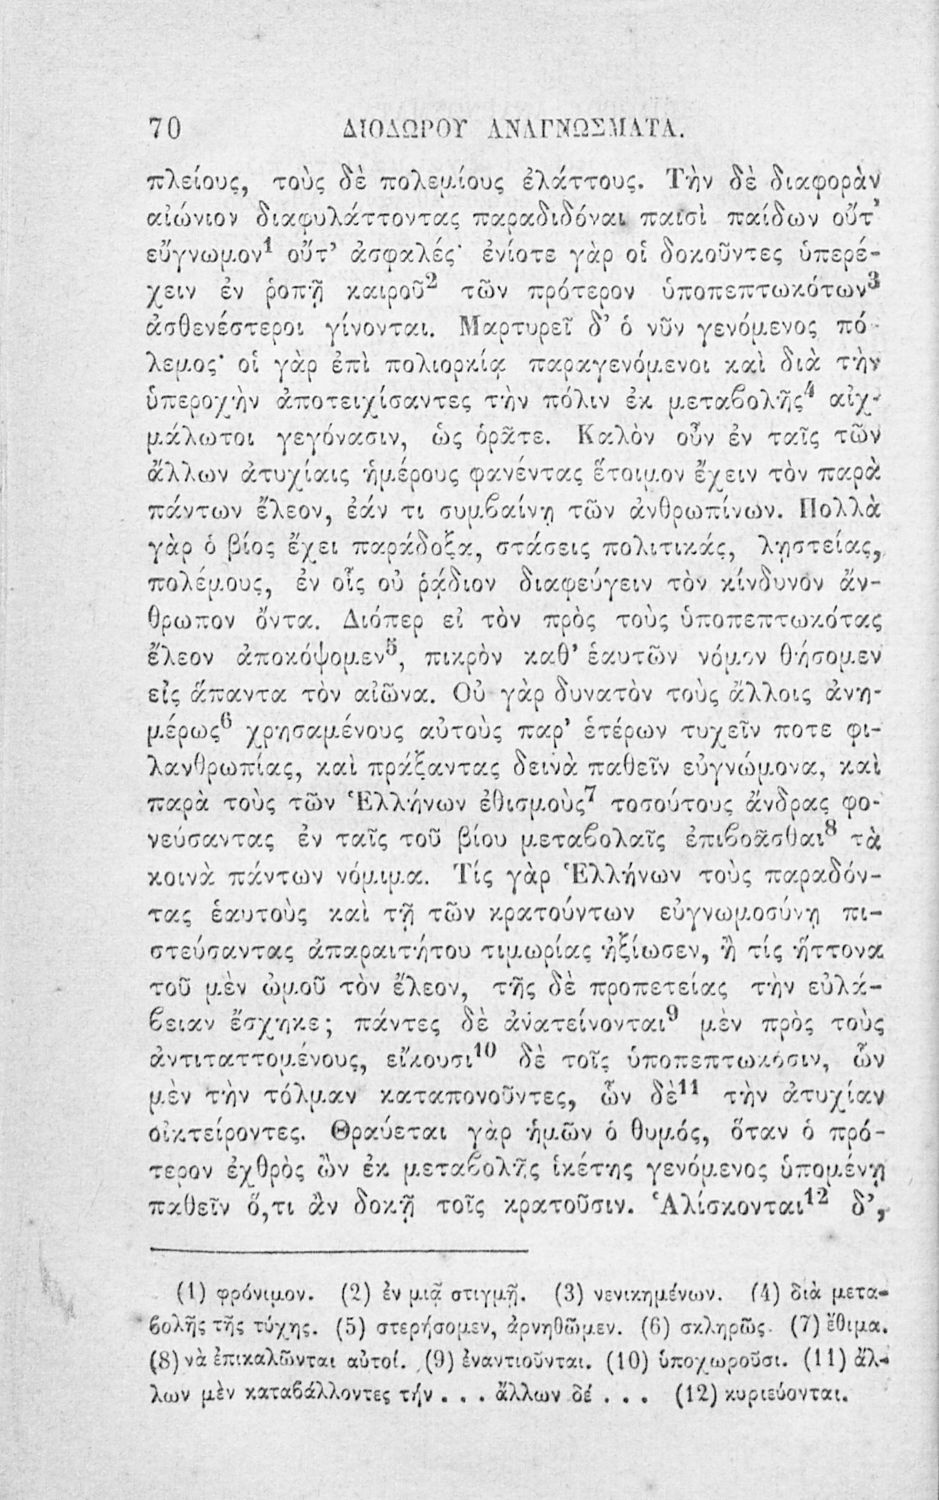 70 ΔΙΟΔΩΡΟΥ ΑΝΑΓΝΩΣΜΑΤΑ.
πλείους, τοὺς δὲ πολεμίους ἐλάττους. Τὴν δὲ διαφορὰν
αἰώνιον διαφυλάττοντας παραδιδόναι παισὶ παίδων οὔτ'
εὔγνωμον¹ οὔτ' ἀσφαλές· ἐνίοτε γὰρ οἱ δοκοῦντες ὑπερέ-
χειν ἐν ῥοπῇ καιροῦ² τῶν πρότερον ὑποπεπτωκότων³
ἀσθενέστεροι γίνονται. Μαρτυρεῖ δ' ὁ νῦν γενόμενος πό-
λεμος· οἱ γὰρ ἐπὶ πολιορκίᾳ παραγενόμενοι καὶ διὰ τὴν
ὑπεροχὴν ἀποτειχίσαντες τὴν πόλιν ἐκ μεταβολῆς⁴ αἰχ-
μάλωτοι γεγόνασιν, ὡς ὁρᾶτε. Καλὸν οὖν ἐν ταῖς τῶν
ἄλλων ἀτυχίαις ἡμέρους φανέντας ἕτοιμον ἔχειν τὸν παρὰ
πάντων ἔλεον, ἐάν τι συμβαίνῃ τῶν ἀνθρωπίνων. Πολλὰ
γὰρ ὁ βίος ἔχει παράδοξα, στάσεις πολιτικάς, λῃστείας,
πολέμους, ἐν οἷς οὐ ῥᾴδιον διαφεύγειν τὸν κίνδυνον ἄν-
θρωπον ὄντα. Διόπερ εἰ τὸν πρὸς τοὺς ὑποπεπτωκότας
ἔλεον ἀποκόψομεν⁵, πικρὸν καθ' ἑαυτῶν νόμον θήσομεν
εἰς ἅπαντα τὸν αἰῶνα. Οὐ γὰρ δυνατὸν τοὺς ἄλλοις ἀνη-
μέρως⁶ χρησαμένους αὐτοὺς παρ' ἑτέρων τυχεῖν ποτε φι-
λανθρωπίας, καὶ πράξαντας δεινὰ παθεῖν εὐγνώμονα, καὶ
παρὰ τοὺς τῶν Ἑλλήνων ἐθισμοὺς⁷ τοσούτους ἄνδρας φο-
νεύσαντας ἐν ταῖς τοῦ βίου μεταβολαῖς ἐπιβοᾶσθαι⁸ τὰ
κοινὰ πάντων νόμιμα. Τίς γὰρ Ἑλλήνων τοὺς παραδόν-
τας ἑαυτοὺς καὶ τῇ τῶν κρατούντων εὐγνωμοσύνῃ πι-
στεύσαντας ἀπαραιτήτου τιμωρίας ἠξίωσεν, ἢ τίς ἥττονα
τοῦ μὲν ὠμοῦ τὸν ἔλεον, τῆς δὲ προπετείας τὴν εὐλά-
βειαν ἔσχηκε; πάντες δὲ ἀνατείνονται⁹ μὲν πρὸς τοὺς
ἀντιταττομένους, εἴκουσι¹⁰ δὲ τοῖς ὑποπεπτωκόσιν, ὧν
μὲν τὴν τόλμαν καταπονοῦντες, ὧν δὲ¹¹ τὴν ἀτυχίαν
οἰκτείροντες. Θραύεται γὰρ ἡμῶν ὁ θυμός, ὅταν ὁ πρό-
τερον ἐχθρὸς ὢν ἐκ μεταβολῆς ἱκέτης γενόμενος ὑπομένῃ
παθεῖν ὅ,τι ἂν δοκῇ τοῖς κρατοῦσιν. Ἁλίσκονται¹² δ',
(1) φρόνιμον. (2) ἐν μιᾷ στιγμῇ. (3) νενικημένων. (4) διὰ μετα-
βολῆς τῆς τύχης. (5) στερήσομεν, ἀρνηθῶμεν. (6) σκληρῶς. (7) ἔθιμα.
(8) νὰ ἐπικαλῶνται αὐτοί. (9) ἐναντιοῦνται. (10) ὑποχωροῦσι. (11) ἄλ-
λων μὲν καταβάλλοντες τήν . . . ἄλλων δέ . . . (12) κυριεύονται.